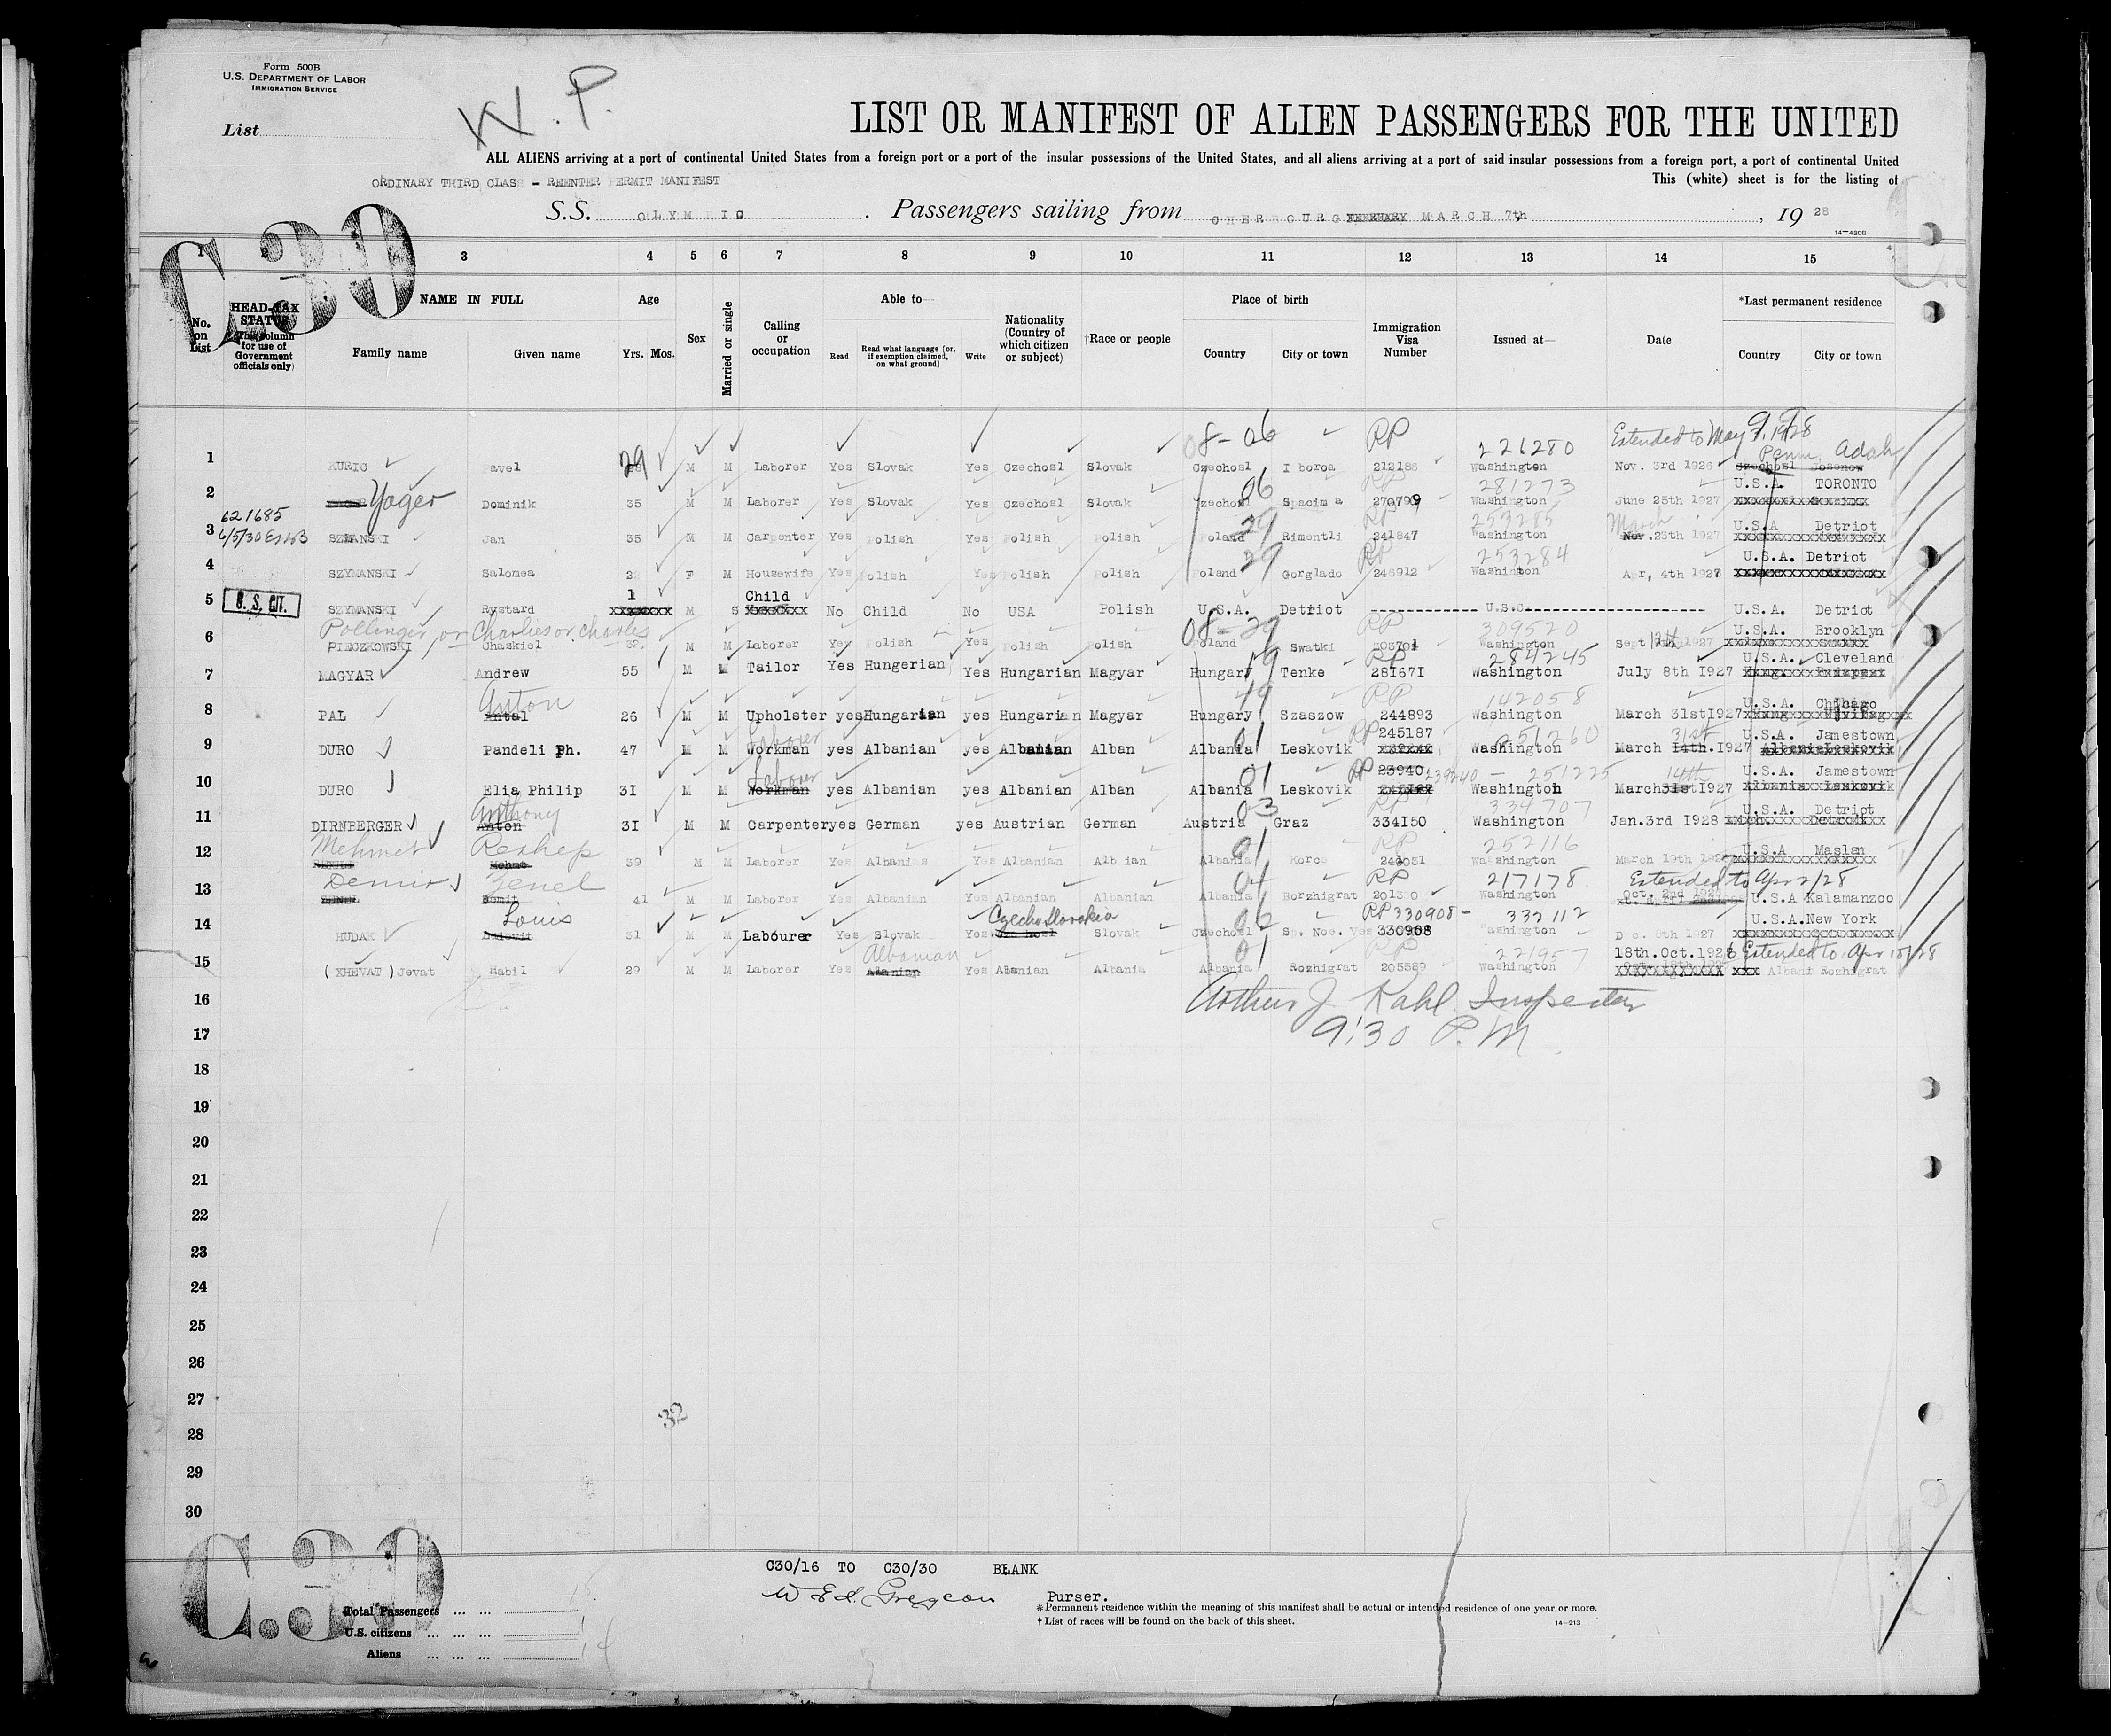 Form 500B
U.S. DEPARTMENT OF LABOR
IMMIGRATION SERVICE
W. P.
List
LIST OR MANIFEST OF ALIEN PASSENGERS FOR THE UNITED
ALL ALIENS arriving at a port of continental United States from a foreign port or a port of the insular possessions of the United States, and all aliens arriving at a port of said insular possessions from a foreign port, a port of continental United
ORDINARY THIRD CLASS - REENTER PERMIT MANIFEST
This (white) sheet is for the listing of
S.S. OLYMPIC . Passengers sailing from CHERBOURG MARCH 7th, 19 28
14-4306
C.30
1 2 3 4 5 6 7 8 9 10 11 12 13 14 15
No. on List
HEAD-TAX STATUS (This column for use of Government officials only)
NAME IN FULL Family name Given name
Age Yrs. Mos.
Sex
Married or single
Calling or occupation
Able to— Read Read what language [or, if exemption claimed, on what ground] Write
Nationality (Country of which citizen or subject)
†Race or people
Place of birth Country City or town
Immigration Visa Number
Issued at—
Date
*Last permanent residence Country City or town
08-06 RP 226280 Extended to May 9, 1928 Penn. Adah
1 KURIC Pavel 29 M M Laborer Yes Slovak Yes Czechosl Slovak Czechosl 212186 Washington Nov. 3rd 1926
06 RP 281273 U.S.A. TORONTO
2 Yager Dominik 35 M M Laborer Yes Slovak Yes Czechosl Slovak Czechosl 270799 Washington June 25th 1927
621685 29 RP 253285 March U.S.A Detriot
3 6/5/30 SZMANSKI Jan 35 M M Carpenter Yes Polish Yes Polish Polish Poland Rimentli 241847 Washington Nov. 23th 1927
29 RP 253284 U.S.A. Detriot
4 SZYMANSKI Salomea F M Housewife Yes Polish Yes Polish Polish Poland Gorglado 246912 Washinton Apr, 4th 1927
1 Child
5 U. S. CIT. SZYMANSKI Rystard M S No Child No USA Polish U.S.A. Detriot U.S.C. U.S.A. Detriot
Pollinger, or Charlies or Charles 08-29 RP 309520 U.S.A. Brooklyn
6 PIECZKOWSKI Chaskiel 32 M M Laborer Yes Polish Yes Polish Polish Poland Swatki Washington Sept 12th 1927
19 RP 284245 U.S.A. Cleveland
7 MAGYAR Andrew 55 M M Tailor Yes Hungerian Yes Hungarian Magyar Hungary Tenke 281671 Washington July 8th 1927
Anton 19 RP 142058 U.S.A. Chicago
8 PAL Antal 26 M M Upholster yes Hungarian yes Hungarian Magyar Hungary Szaszow 244893 Washington March 31st 1927
Laborer 01 RP 245187 251260 31st U.S.A. Jamestown
9 DURO Pandeli Ph. 47 M M Workman yes Albanian yes Albanian Alban Albania Leskovik Washington March 14th. 1927 Albania Leskovik
Laborer 01 RP 23940 239240 - 251225 14th U.S.A. Jamestown
10 DURO Elia Philip 31 M M Workman yes Albanian yes Albanian Alban Albania Leskovik Washington March 31st 1927 Albania Leskovik
Anthony 03 RP 334707 U.S.A. Detriot
11 DIRNBERGER Anton 31 M M Carpenter yes German yes Austrian German Austria Graz 334150 Washington Jan. 3rd 1928
Mehmet Reshep 01 RP 252116 U.S.A Maslan
12 Mehmt 39 M M Laborer Yes Albanias Yes Albanian Alb ian Albania Korce Washington March 19th 1927
Demir Zenel 04 RP 217178 Extended to Apr 2/28
13 41 M M Laborer Yes Albanian Yes Albanian Albanian Albania Borzhigrat Washington Oct. 2nd U.S.A Kalamanzoo
Louis Czecho Slovakia 02 RP 330908 - 332112 U.S.A. New York
14 HUDAK 31 M M Labourer Yes Slovak Yes Slovak Czechosl 330908 Washington Dec. 8th 1927
Albanian 01 RP 221957 18th. Oct. 1926 Extended to Apr 18/28
15 (XHEVAT) Jevat Habil 29 M M Laborer Yes Alanian Yes Albanian Albania Albania Rozhigrat 205589 Washington Rozhigrat
16 Arthur J. Kahl Inspector
17 9:30 P.M.
18
19
20
21
22
23
24
25
26
27
32
28
29
30
C.30
C30/16 TO C30/30 BLANK
Purser.
Total Passengers ... ... 15
U.S. citizens ... ... ... 1
Aliens ... ... ... 14
* Permanent residence within the meaning of this manifest shall be actual or intended residence of one year or more.
† List of races will be found on the back of this sheet.
14-213